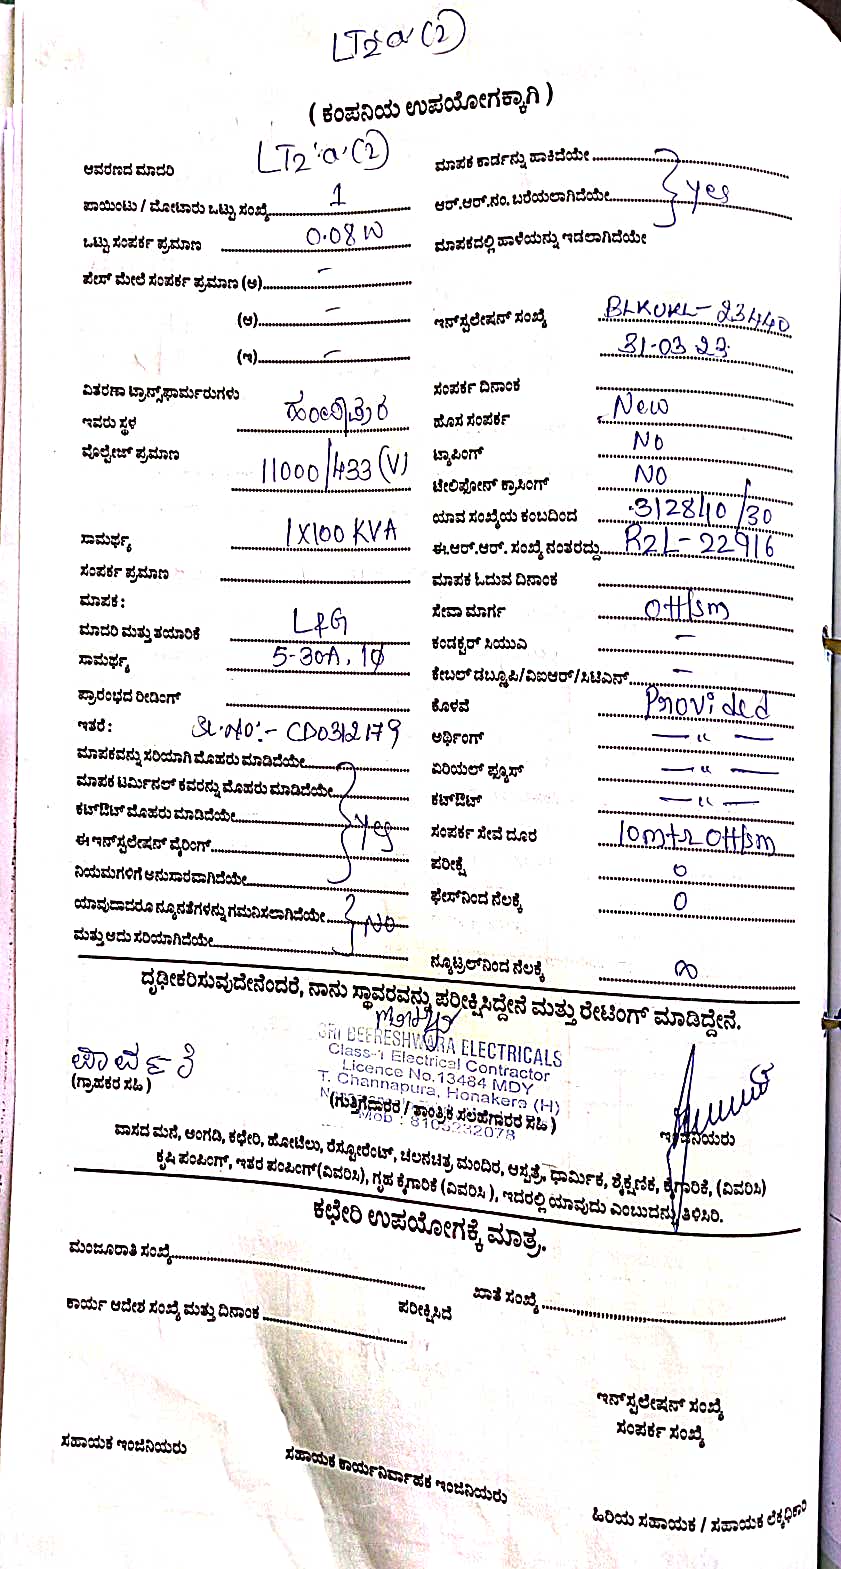 LT2'a'(2)
( ಕಂಪನಿಯ ಉಪಯೋಗಕ್ಕಾಗಿ )
ಆವರಣದ ಮಾದರಿ LT2'a'(2)
ಪಾಯಿಂಟು / ಮೋಟಾರು ಒಟ್ಟು ಸಂಖ್ಯೆ 1
ಒಟ್ಟು ಸಂಪರ್ಕ ಪ್ರಮಾಣ 0.08 W
ಪೇಸ್ ಮೇಲೆ ಸಂಪರ್ಕ ಪ್ರಮಾಣ (ಅ) –
(ಆ) –
(ಇ) –
ವಿತರಣಾ ಟ್ರಾನ್ಸ್‌ಫಾರ್ಮರುಗಳು
ಇವರು ಸ್ಥಳ
ವೊಲ್ಟೇಜ್ ಪ್ರಮಾಣ 11000/433 (V)
ಸಾಮರ್ಥ್ಯ 1X100 KVA
ಸಂಪರ್ಕ ಪ್ರಮಾಣ
ಮಾಪಕ :
ಮಾದರಿ ಮತ್ತು ತಯಾರಿಕೆ L&G
ಸಾಮರ್ಥ್ಯ 5-30A, 1φ
ಪ್ರಾರಂಭದ ರೀಡಿಂಗ್
ಇತರೆ : SL.NO:- CD0312179
ಮಾಪಕವನ್ನು ಸರಿಯಾಗಿ ಮೊಹರು ಮಾಡಿದೆಯೇ
ಮಾಪಕ ಟರ್ಮಿನಲ್ ಕವರನ್ನು ಮೊಹರು ಮಾಡಿದೆಯೇ
ಕಟ್‌ಔಟ್ ಮೊಹರು ಮಾಡಿದೆಯೇ yes
ಈ ಇನ್‌ಸ್ಟಲೇಷನ್ ವೈರಿಂಗ್
ನಿಯಮಗಳಿಗೆ ಅನುಸಾರವಾಗಿದೆಯೇ
ಯಾವುದಾದರೂ ನ್ಯೂನತೆಗಳನ್ನು ಗಮನಿಸಲಾಗಿದೆಯೇ NO
ಮತ್ತು ಅದು ಸರಿಯಾಗಿದೆಯೇ
ಮಾಪಕ ಕಾರ್ಡನ್ನು ಹಾಕಿದೆಯೇ
ಆರ್.ಆರ್.ನಂ. ಬರೆಯಲಾಗಿದೆಯೇ yes
ಮಾಪಕದಲ್ಲಿ ಹಾಳೆಯನ್ನು ಇಡಲಾಗಿದೆಯೇ
ಇನ್‌ಸ್ಟಲೇಷನ್ ಸಂಖ್ಯೆ BLKUKL-23440
31-03 23
ಸಂಪರ್ಕ ದಿನಾಂಕ
ಹೊಸ ಸಂಪರ್ಕ New
ಟ್ಯಾಪಿಂಗ್ NO
ಟೆಲಿಫೋನ್ ಕ್ರಾಸಿಂಗ್ NO
ಯಾವ ಸಂಖ್ಯೆಯ ಕಂಬದಿಂದ 312840/30
ಈ.ಆರ್.ಆರ್. ಸಂಖ್ಯೆ ನಂತರದ್ದು R2L-22916
ಮಾಪಕ ಓದುವ ದಿನಾಂಕ
ಸೇವಾ ಮಾರ್ಗ OH/sm
ಕಂಡಕ್ಟರ್ ಸಿಯುಎ –
ಕೇಬಲ್ ಡಬ್ಲೂಪಿ/ವಿಐಆರ್/ಸಿಟಿಎನ್ –
ಕೊಳವೆ Provided
ಅರ್ಥಿಂಗ್ — " —
ಏರಿಯಲ್ ಫ್ಯೂಸ್ — " —
ಕಟ್‌ಔಟ್ — " —
ಸಂಪರ್ಕ ಸೇವೆ ದೂರ 10mtr OH/sm
ಪರೀಕ್ಷೆ 0
ಫೇಸ್‌ನಿಂದ ನೆಲಕ್ಕೆ 0
ನ್ಯೂಟ್ರಲ್‌ನಿಂದ ನೆಲಕ್ಕೆ ∞
ದೃಢೀಕರಿಸುವುದೇನೆಂದರೆ, ನಾನು ಸ್ಥಾವರವನ್ನು ಪರೀಕ್ಷಿಸಿದ್ದೇನೆ ಮತ್ತು ರೇಟಿಂಗ್ ಮಾಡಿದ್ದೇನೆ.
SRI BEERESHWARA ELECTRICALS
Class-1 Electrical Contractor
Licence No.13484 MDY
T. Channapura, Honakere (H)
Mob : 8105232078
ಪಾರ್ವತಿ
(ಗ್ರಾಹಕರ ಸಹಿ)
(ಗುತ್ತಿಗೆದಾರರ / ತಾಂತ್ರಿಕ ಸಲಹೆಗಾರರ ಸಹಿ)
ಇಂಜಿನಿಯರು
ವಾಸದ ಮನೆ, ಅಂಗಡಿ, ಕಛೇರಿ, ಹೋಟೆಲು, ರೆಸ್ಟೋರೆಂಟ್, ಚಲನಚಿತ್ರ, ಮಂದಿರ, ಆಸ್ಪತ್ರೆ, ಧಾರ್ಮಿಕ, ಶೈಕ್ಷಣಿಕ, ಕೈಗಾರಿಕೆ, (ವಿವರಿಸಿ)
ಕೃಷಿ ಪಂಪಿಂಗ್, ಇತರ ಪಂಪಿಂಗ್(ವಿವರಿಸಿ), ಗೃಹ ಕೈಗಾರಿಕೆ (ವಿವರಿಸಿ ), ಇದರಲ್ಲಿ ಯಾವುದು ಎಂಬುದನ್ನು ತಿಳಿಸಿರಿ.
ಕಛೇರಿ ಉಪಯೋಗಕ್ಕೆ ಮಾತ್ರ.
ಮಂಜೂರಾತಿ ಸಂಖ್ಯೆ
ಖಾತೆ ಸಂಖ್ಯೆ
ಕಾರ್ಯ ಆದೇಶ ಸಂಖ್ಯೆ ಮತ್ತು ದಿನಾಂಕ
ಪರೀಕ್ಷಿಸಿದೆ
ಇನ್‌ಸ್ಟಲೇಷನ್ ಸಂಖ್ಯೆ
ಸಂಪರ್ಕ ಸಂಖ್ಯೆ
ಸಹಾಯಕ ಇಂಜಿನಿಯರು
ಸಹಾಯಕ ಕಾರ್ಯನಿರ್ವಾಹಕ ಇಂಜಿನಿಯರು
ಹಿರಿಯ ಸಹಾಯಕ / ಸಹಾಯಕ ಲೆಕ್ಕಧಿಕಾರಿ